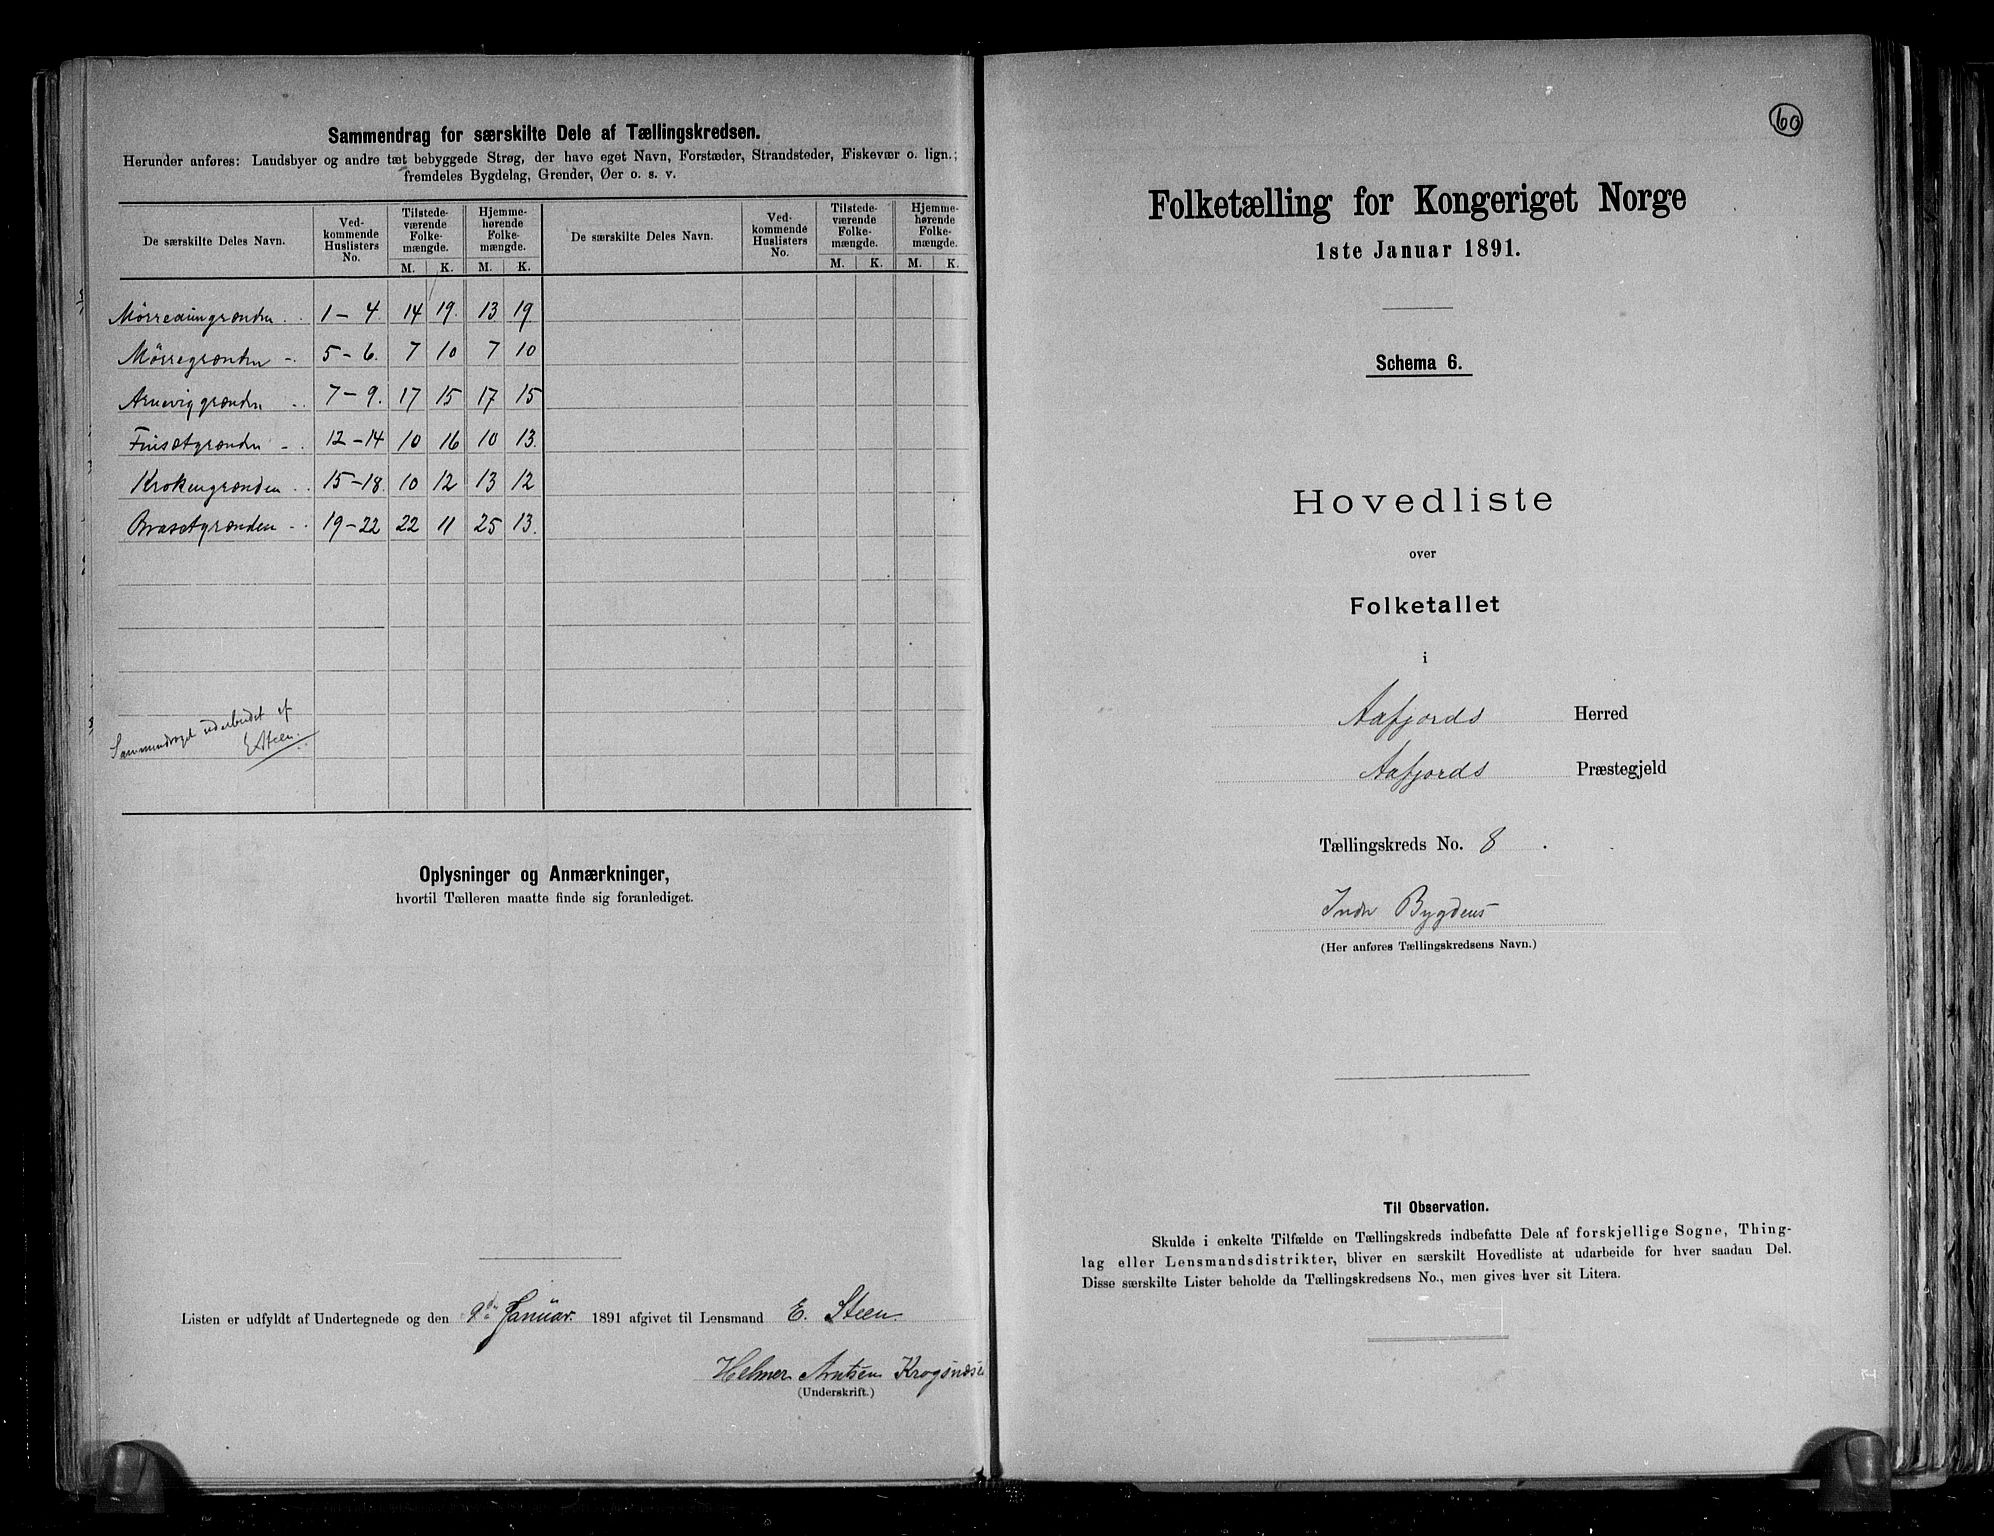 Sammendrag for særskilte Dele af Tællingskredsen.
Herunder anføres: Landsbyer og andre tæt bebyggede Strøg, der have eget Navn, Forstæder, Strandsteder, Fiskevær o. lign.;
fremdeles Bygdelag, Grender, Øer o. s. v.
De særskilte Deles Navn. Ved-kommende Huslisters No. Tilstede-værende Folke-mængde. Hjemme-hørende Folke-mængde. De særskilte Deles Navn. Ved-kommende Huslisters No. Tilstede-værende Folke-mængde. Hjemme-hørende Folke-mængde.
M. K. M. K. M. K. M. K.
Mørreaungrænden 1-4 14 19. 13 19
Mørregrænden 5-6. 7 10 7 10
Arnevиggrænden 7-9. 17 15 17 15
Finsætgrænden 12-14 10 16 10 13.
Krokengrænden 15-18. 10 12 13 12
Bræsetgrænden 19-22 22 11 25 13.
Sammendraget udarbeidet af
E. Steen.
Oplysninger og Anmærkninger,
hvortil Tælleren maatte finde sig foranlediget.
Listen er udfyldt af Undertegnede og den 9de Januar 1891 afgivet til Lensmand E. Steen.
Helmer Arntsen Krogsnæs
(Underskrift.)
60
Folketælling for Kongeriget Norge
1ste Januar 1891.
Schema 6.
Hovedliste
over
Folketallet
i
Aafjords Herred
Aafjords Præstegjeld
Tællingskreds No. 8.
Indre Bygdens
(Her anføres Tællingskredsens Navn.)
Til Observation.
Skulde i enkelte Tilfælde en Tællingskreds indbefatte Dele af forskjellige Sogne, Thing-
lag eller Lensmandsdistrikter, bliver en særskilt Hovedliste at udarbeide for hver saadan Del.
Disse særskilte Lister beholde da Tællingskredsens No., men gives hver sit Litera.